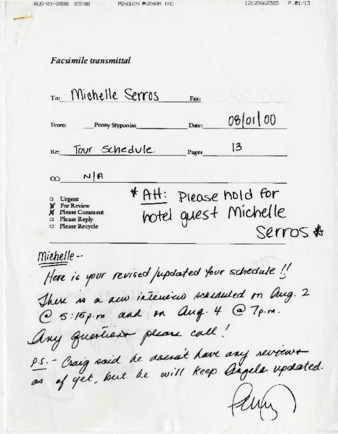 AUG-01-2000 03:08 PENGUIN PUTNAM INC P.01/13
Facsimile transmittal
To: Michelle Serros Fax:
From: Penny Styponias Date: 08/01/00
Re: Tour Schedule Pages 13
CC: N/A
Urgent
For Review
Please Comment
Please Reply
Please Recycle
* Att: Please hold for
hotel guest Michelle
Serros *
Michelle--
Here is your revised/updated tour schedule!!
There is a new interview scheduled on Aug. 2
@ 5:15p.m and on Aug. 4 @ 7p.m.
Any questions please call!
P.S. - Craig said he doesn't have any reviews
as of yet, but he will keep Angela updated.
Penny